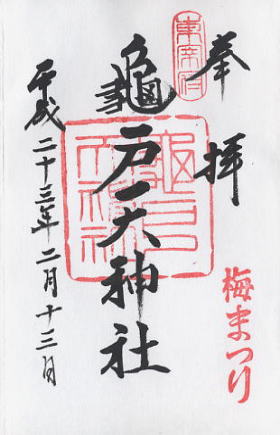 奉拝
梅まつり
東宰府
亀戸天神社
龜戸天神社
平成二十三年二月十三日